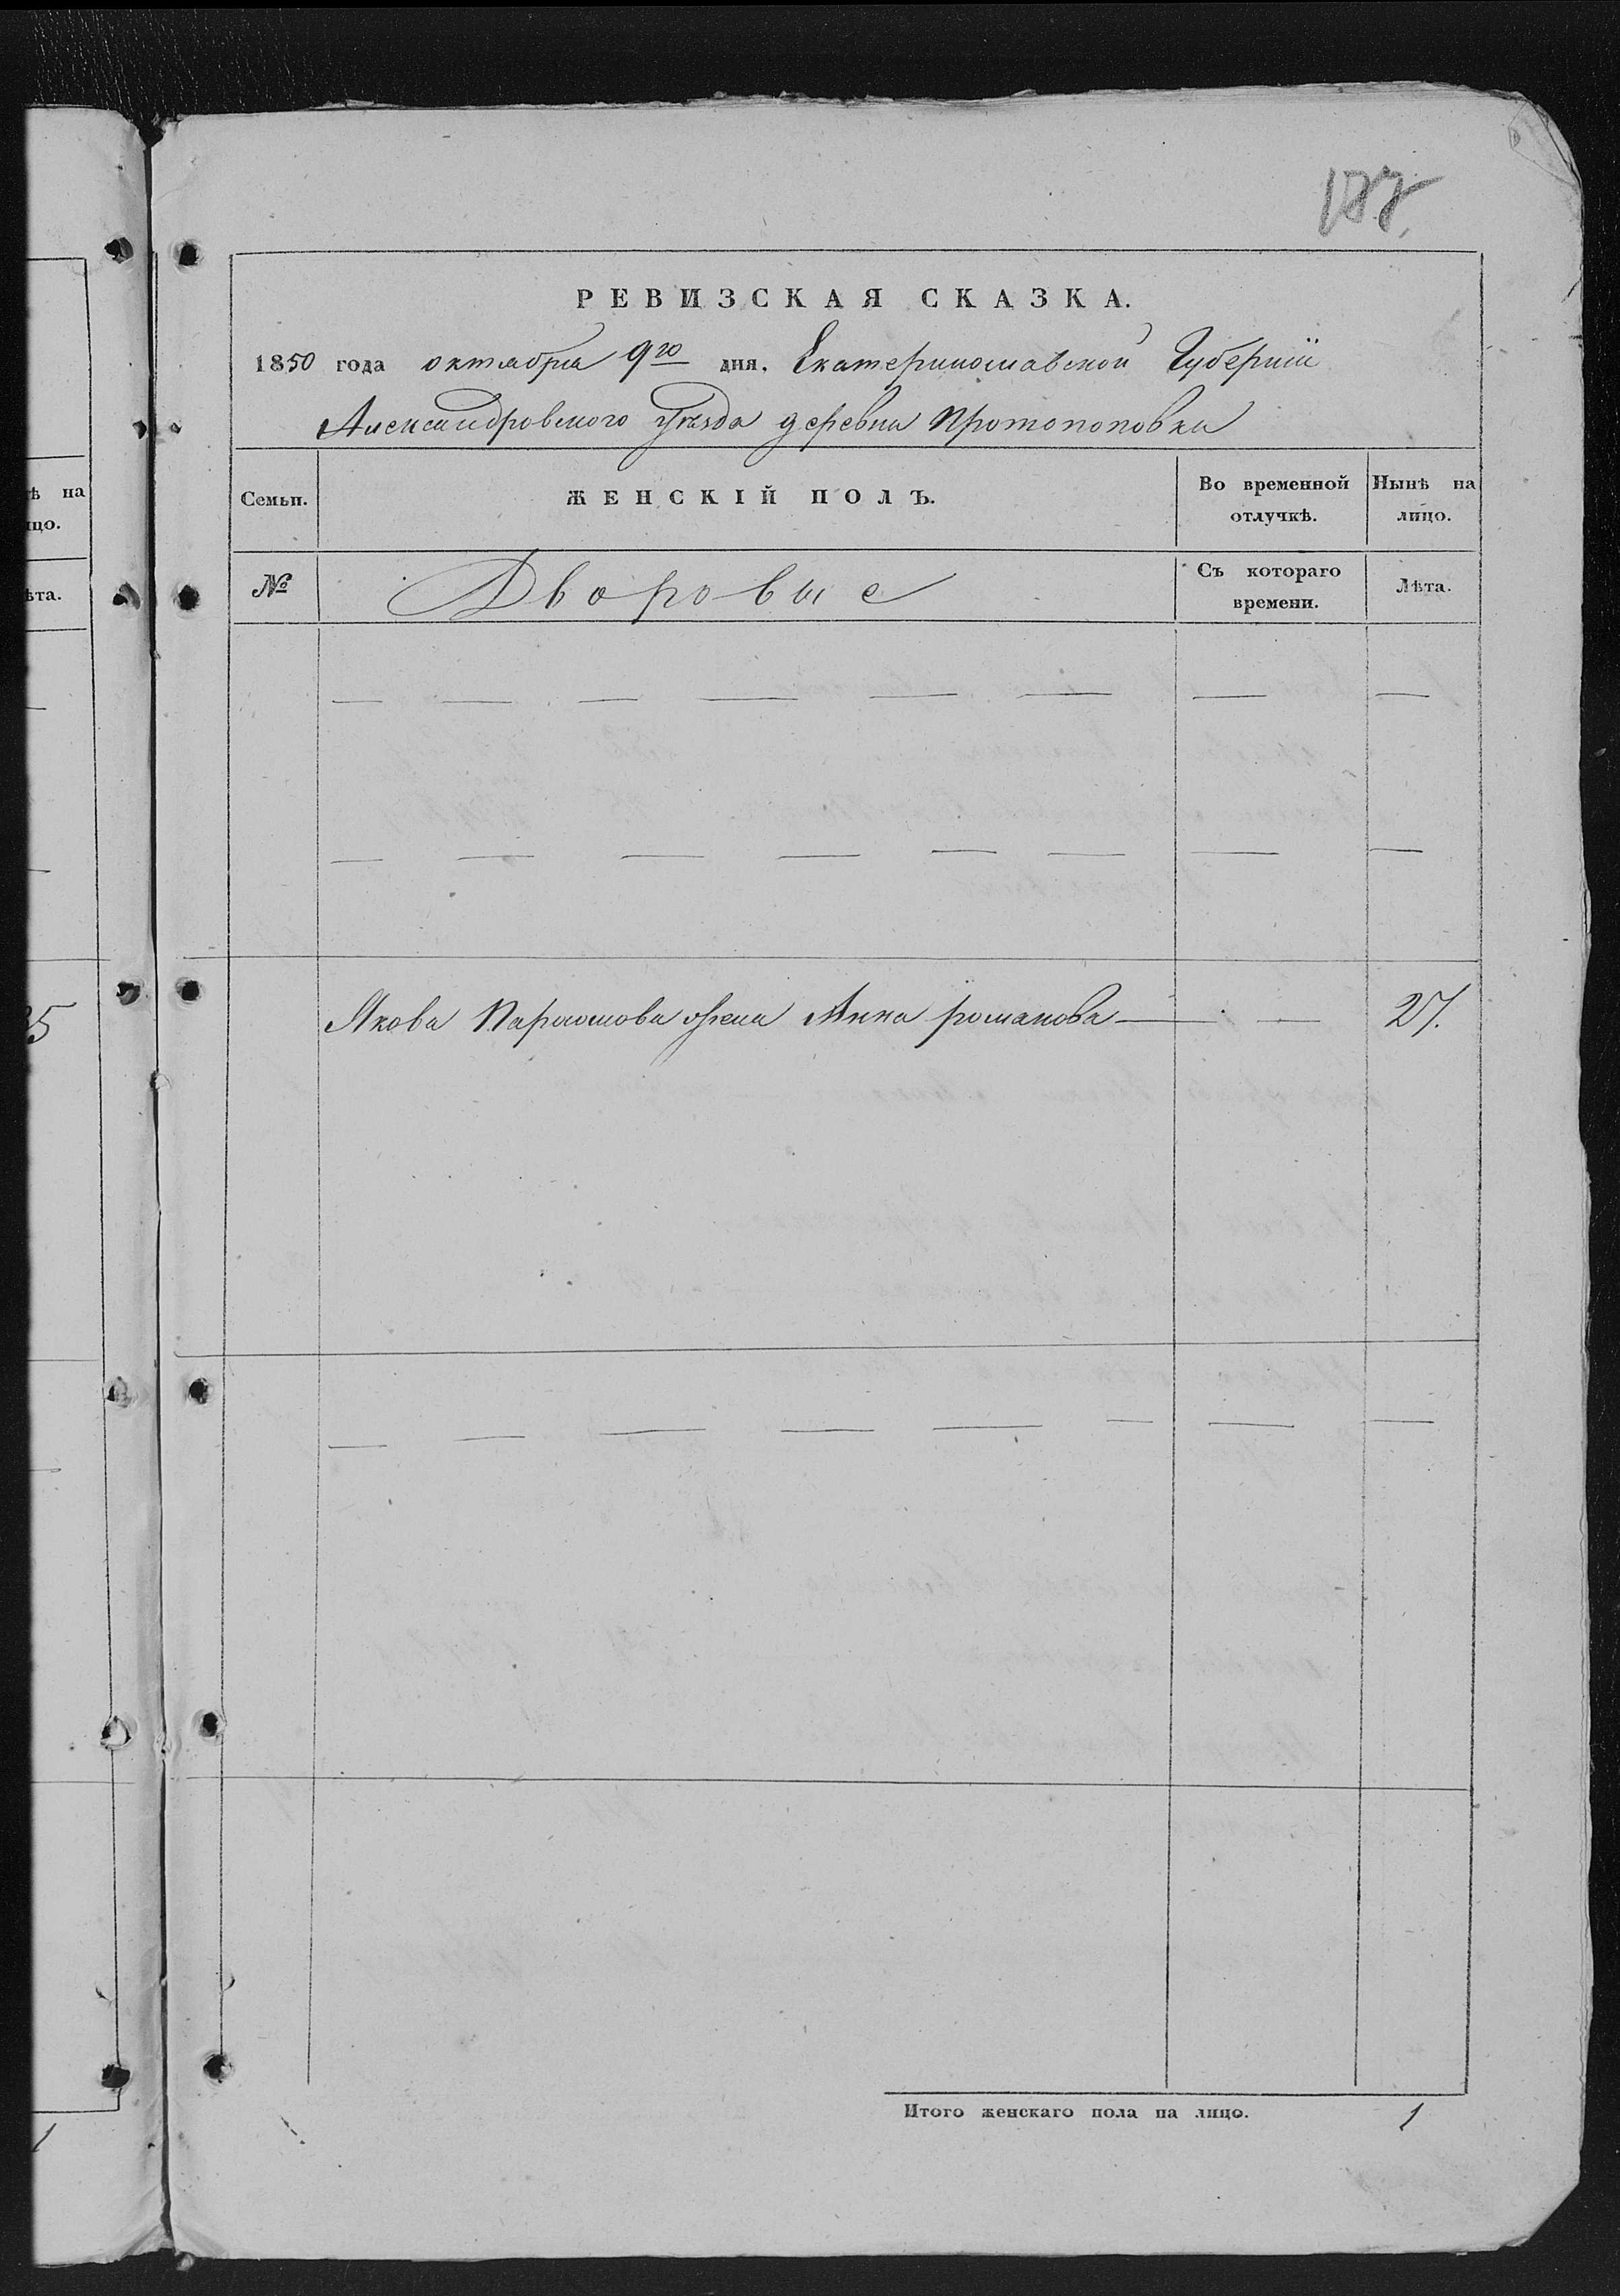 ѣ на
цо.
ѣта.
5
1
РЕВИЗСКАЯ СКАЗКА.
1850 года октября 9го дня. Екатеринославской Губернии
Александровского уѣзда деревни Протопоповки
Семьи. ЖЕНСКІЙ ПОЛЪ. Во временной отлучкѣ. Нынѣ на лицо.
№ Дворовые Съ котораго времени. Лѣта.
— — — — — — — —
— — — — — — — —
Якова жена Анна романова — — 27.
— — — — — — — —
Итого женскаго пола на лицо. 1